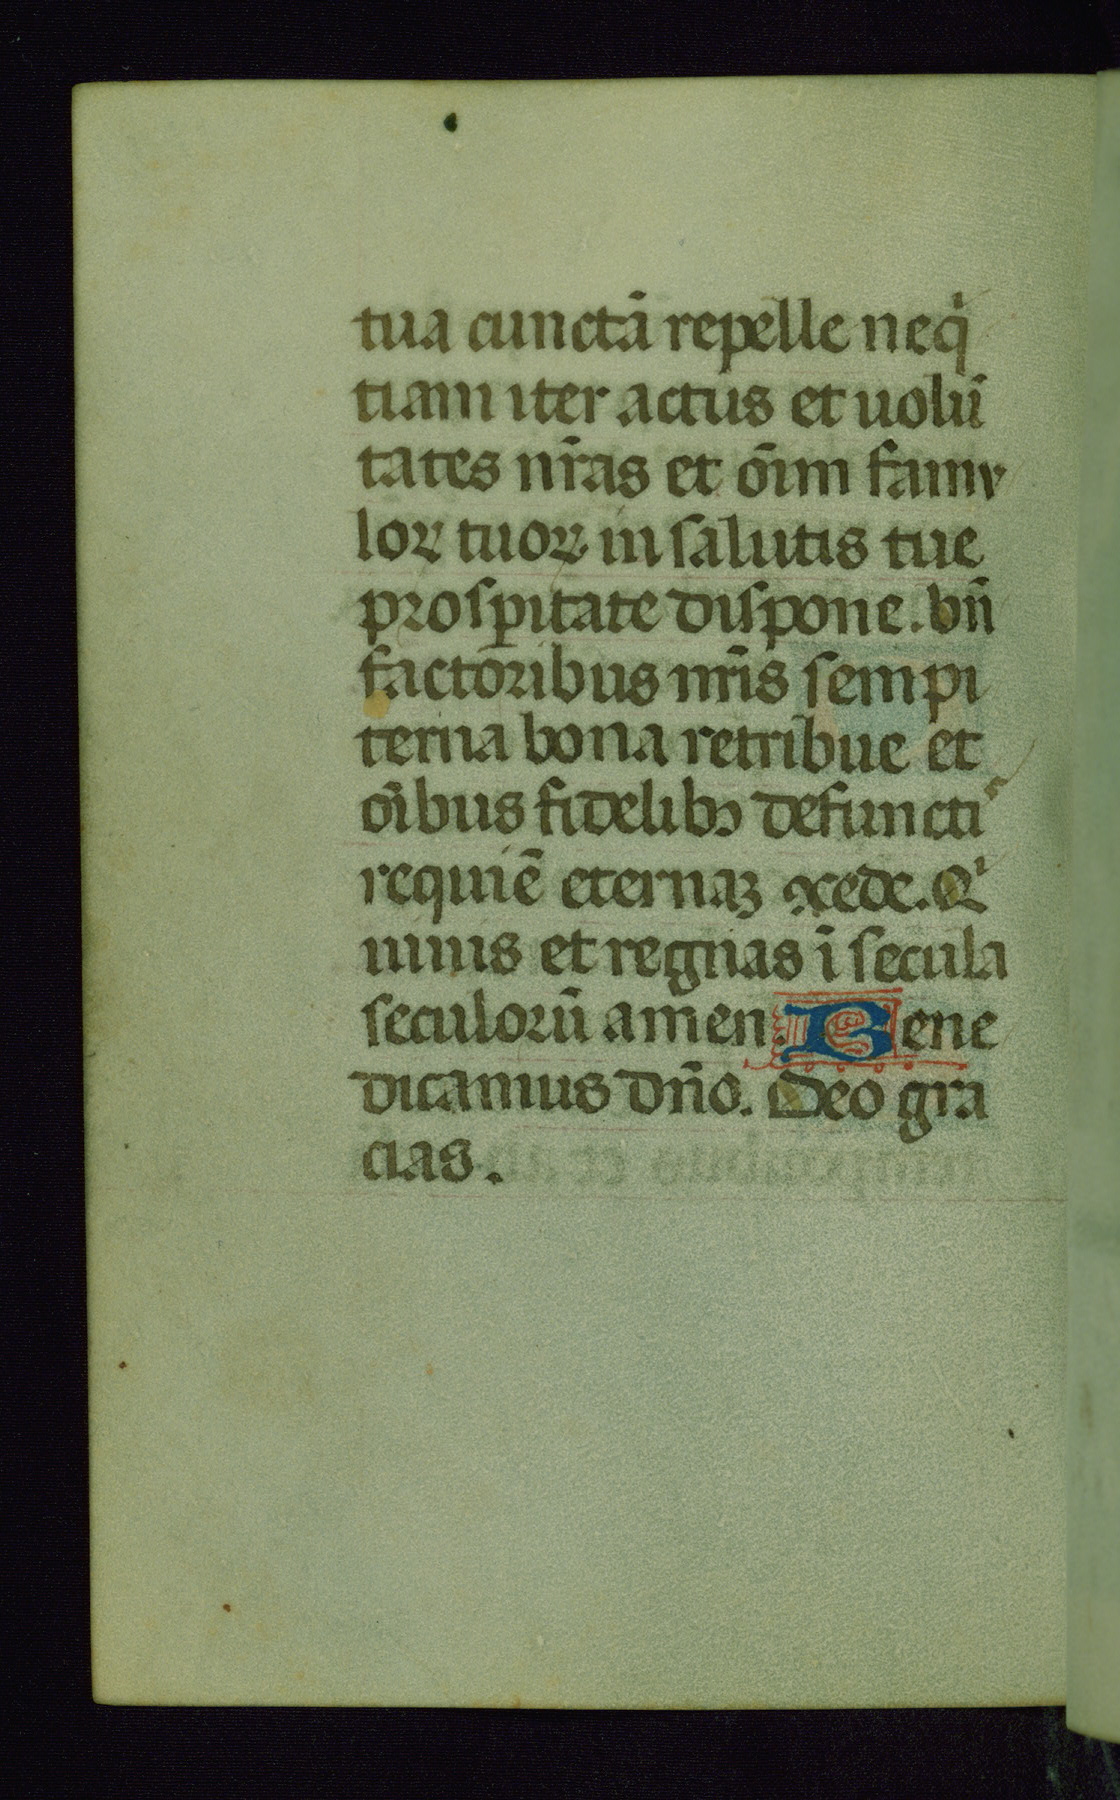 tua cunctā repelle neqͥ
tiam iter actus et uolū
tates nr̄as et oīm famu
loꝝ tuoꝝ in salutis tue
prosꝑitate dispone. bn̄
factoribus nr̄is sempi
terna bona retribue et
oībus fidelibꝫ defuncti
requiē eternaꝫ ꝯcede. Qͥ
uiuis et regnas ī secula
seculorū amen. Bene
dicamus dn̄o. Deo gra
cias.